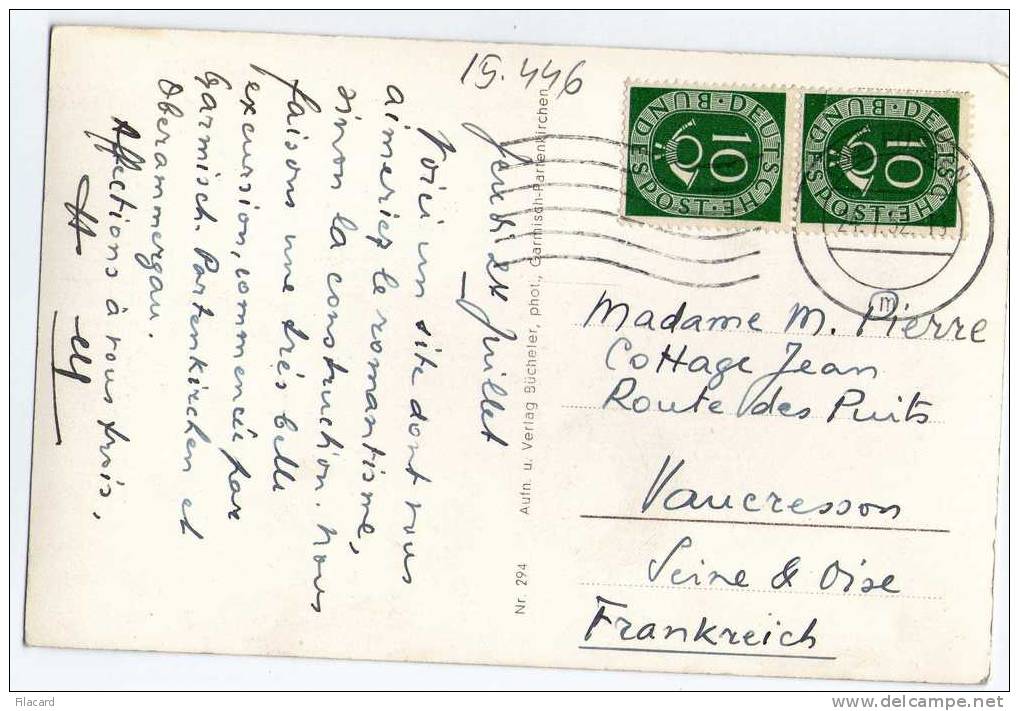 15.446
Jeudi 24 Juillet
Voici un site dont vous
aimeriez le romantisme,
sinon la construction. Nous
faisons une très belle
excursion, commencée par
Garmisch-Partenkirchen et
Oberammergau.
Affections à vous trois.
DEUTSCHE BUNDESPOST
10
DEUTSCHE BUNDESPOST
10
m
Madame M. Pierre
Cottage Jean
Route des Puits
Vaucresson
Seine & Oise
Frankreich
Nr. 294 Aufn. u. Verlag Bücheler, phot., Garmisch-Partenkirchen
Filacard
www.delcampe.net